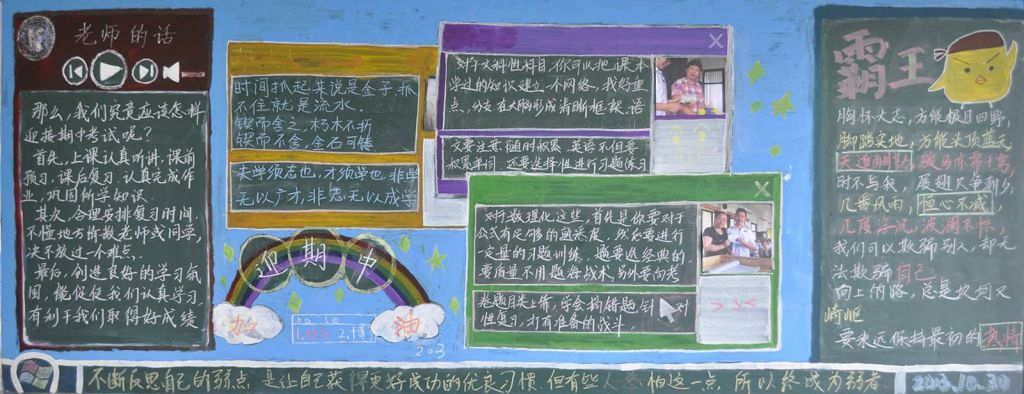 老师的话
那么,我们究竟应该怎样
迎接期中考试呢?
首先,上课认真听讲.课前
预习.课后复习.认真完成作
业,巩固所学知识.
其次,合理安排复习时间.
不懂地方请教老师或同学,
决不放过一个难点.
最后,创造良好的学习氛
围,能促使我们认真学习
有利于我们取得好成绩
时间抓起来说是金子,抓
不住就是流水.
锲而舍之,朽木不折
锲而不舍,金石可镂
夫学须志也,才须学也,非学
无以广才,非志无以成学
迎期中
加
油
203
对于文科性科目,你可以把课本
学过的知识建立一个网络,找好重
点,分支在大脑形成清晰框架.语
文要注意随时积累,英语不但要
积累单词,还要选择性进行习题练习
对于数理化这些,首先是你要对于
公式有足够的熟悉度,然后要进行
一定量的习题训练,题要选经典的
要质量不用题海战术,另外要多考
老题归类上等,学会摘错题,针对
性复习,才有准备的战斗.
霸王
胸怀大志,方能极目四野,
脚踏实地,方能头顶蓝天,
天道酬勤
时不与我,展翅只争朝夕;
几番风雨,恒心不减,
几度浮沉,波澜不惊,
我们可以欺骗别人,却无
法欺骗自己
向上的路,总是坎坷又
崎岖
要永远保持最初的热情
不断反思自己的弱点,是让自己获得更好成功的优良习惯.但有些人怕这一点,所以终成为弱者
2013.10.30